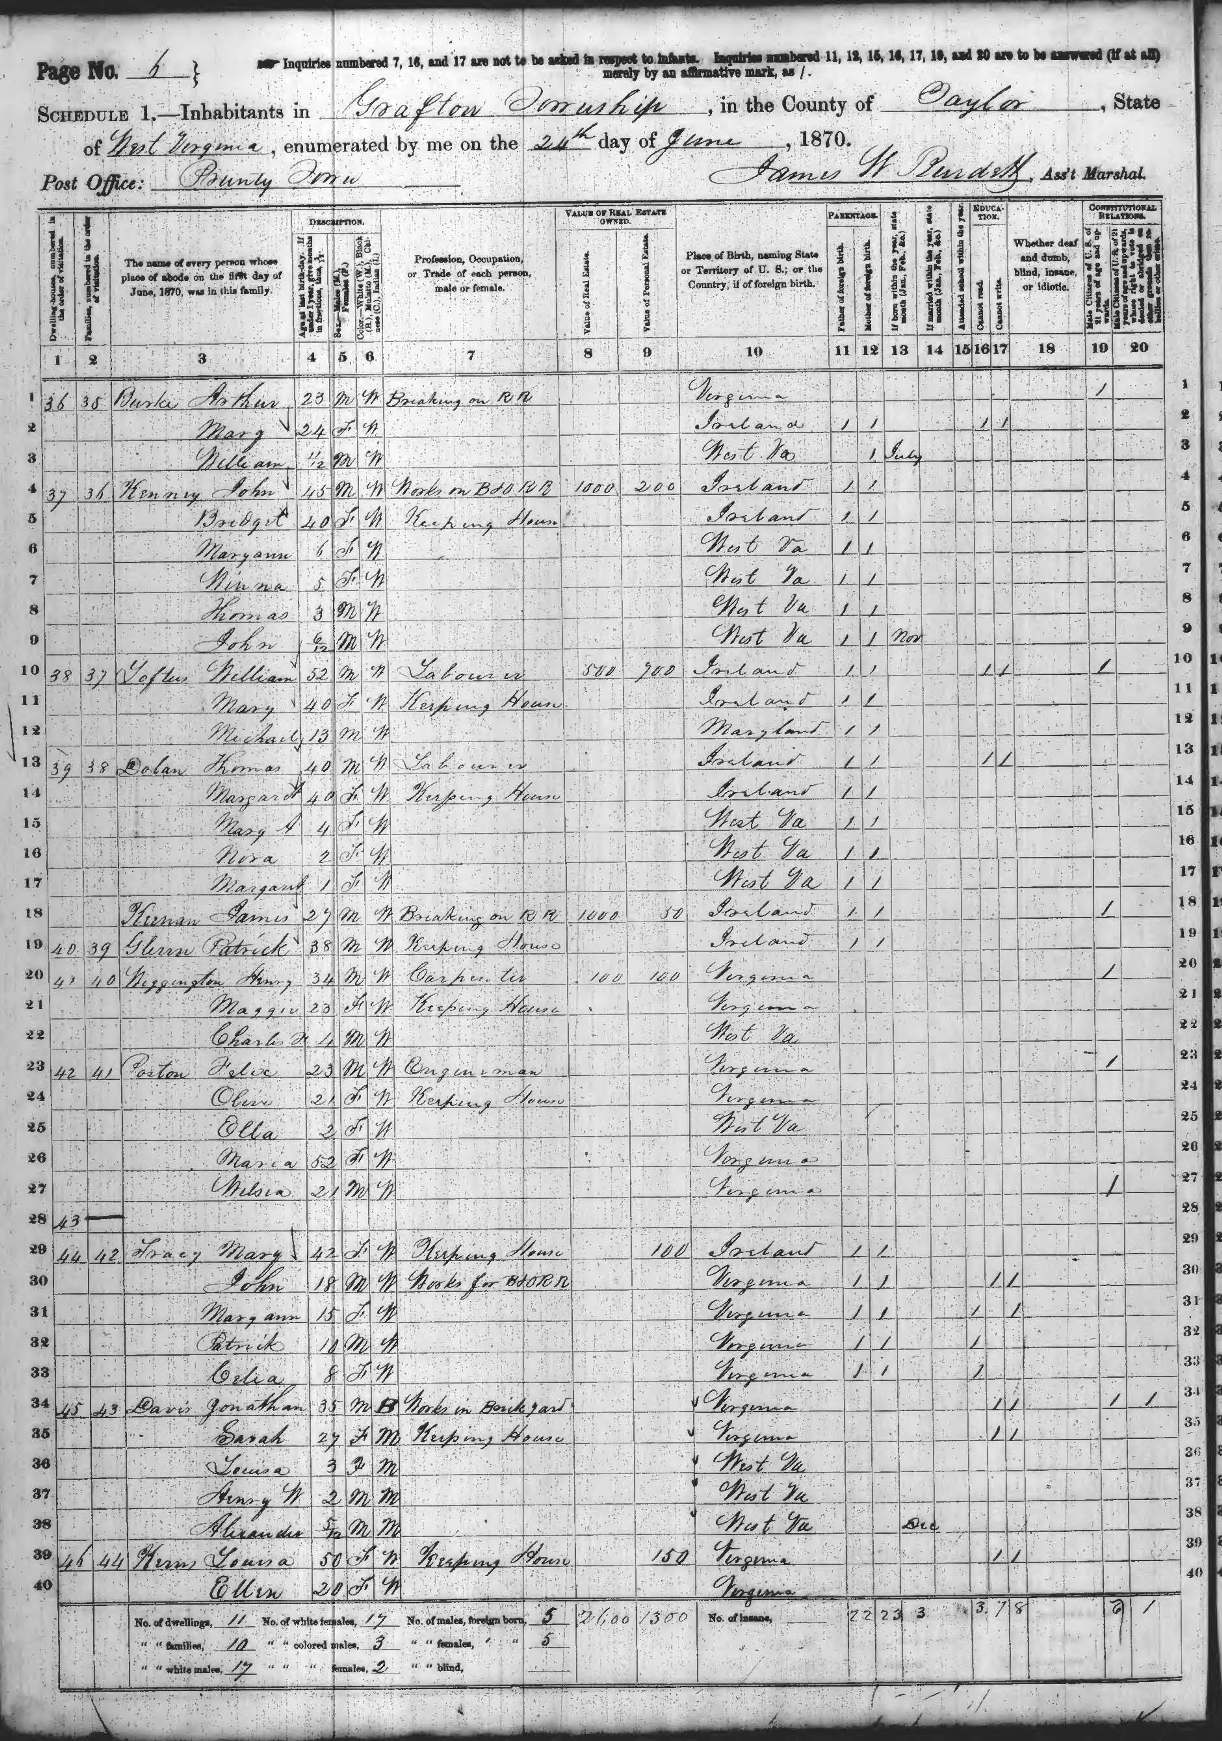 Page No. 6 } Inquiries numbered 7, 16, and 17 are not to be asked in respect to infants. Inquiries numbered 11, 12, 15, 16, 17, 19, and 20 are to be answered (if at all)
merely by an affirmative mark, as /.
SCHEDULE 1.—Inhabitants in Grafton Township, in the County of Taylor, State
of West Virginia, enumerated by me on the 24th day of June, 1870.
Post Office: Prunty Town James W Burdett, Ass't Marshal.
Dwelling-houses, numbered in the order of visitation.
Families, numbered in the order of visitation.
The name of every person whose place of abode on the first day of June, 1870, was in this family.
DESCRIPTION.
Age at last birth-day. If under 1 year, give months in fractions, thus, 3/12.
Sex.—Males (M.), Females (F.)
Color.—White (W.), Black (B.), Mulatto (M.), Chinese (C.), Indian (I.)
Profession, Occupation, or Trade of each person, male or female.
VALUE OF REAL ESTATE OWNED.
Value of Real Estate.
Value of Personal Estate.
Place of Birth, naming State or Territory of U. S.; or the Country, if of foreign birth.
PARENTAGE.
Father of foreign birth.
Mother of foreign birth.
If born within the year, state month (Jan., Feb., &c.)
If married within the year, state month (Jan., Feb., &c.)
EDUCATION.
Attended school within the year.
Cannot read.
Cannot write.
Whether deaf and dumb, blind, insane, or idiotic.
CONSTITUTIONAL RELATIONS.
Male Citizens of U. S. of 21 years of age and upwards.
Male Citizens of U. S. of 21 years of age and upwards, whose right to vote is denied or abridged on other grounds than rebellion or other crime.
1 2 3 4 5 6 7 8 9 10 11 12 13 14 15 16 17 18 19 20
1 36 35 Burke Arthur 23 M W Breaking on R R Virginia 1 1
2 Mary 24 F W Ireland 1 1 1 1 2
3 William 11/12 M W West Va 1 July 3
4 37 36 Kenney John 45 M W Works on B&O R R 1000 200 Ireland 1 1 4
5 Bridget 40 F W Keeping House Ireland 1 1 5
6 Maryann 6 F W West Va 1 1 6
7 Winna 5 F W West Va 1 1 7
8 Thomas 3 M W West Va 1 1 8
9 John 6/12 M W West Va 1 1 Nov 9
10 38 37 Loftus William 52 M W Labourer 500 700 Ireland 1 1 1 1 1 10
11 Mary 40 F W Keeping House Ireland 1 1 11
12 Michael 13 M W Maryland 1 1 12
13 39 38 Dolan Thomas 40 M W Labourer Ireland 1 1 1 1 13
14 Margaret 40 F W Keeping House Ireland 1 1 14
15 Mary A 4 F W West Va 1 1 15
16 Nora 2 F W West Va 1 1 16
17 Margaret 1 F W West Va 1 1 17
18 Keenan James 27 M W Breaking on R R 1000 50 Ireland 1 1 1 18
19 40 39 Patrick 38 M W Keeping House Ireland 1 1 19
20 41 40 Henry 34 M W Carpenter 100 100 Virginia 1 20
21 Maggie 23 F W Keeping House Virginia 21
22 Charles 4 M W West Va 22
23 42 41 Poston Felix 23 M W Engineman Virginia 1 23
24 Olive 21 F W Keeping House Virginia 24
25 Ella 2 F W West Va 25
26 Maria 52 F W Virginia 26
27 21 M W Virginia 1 27
28 43 — 28
29 44 42 Tracy Mary 42 F W Keeping House 100 Ireland 1 1 29
30 John 18 M W Works for B&O R R Virginia 1 1 1 1 30
31 Maryann 15 F W Virginia 1 1 1 1 31
32 Patrick 10 M W Virginia 1 1 1 32
33 Celia 8 F W Virginia 1 1 1 33
34 45 43 Davis Jonathan 35 M B Works in Brickyard Virginia 1 1 1 1 34
35 Sarah 27 F M Keeping House Virginia 1 1 35
36 Louisa 3 F M West Va 36
37 Henry W 2 M M West Va 37
38 Alexander 5/12 M M West Va Dec 38
39 46 44 Kerns Louisa 50 F W Keeping House 150 Virginia 1 1 39
40 Ellen 20 F W Virginia 40
No. of dwellings, 11 No. of white females, 17 No. of males, foreign born, 5 2600 1300 No. of insane, 22 23 3 3 7 8 6 1
" " families, 10 " " colored males, 3 " " females, " " 5
" " white males, 17 " " " females, 2 " " blind,